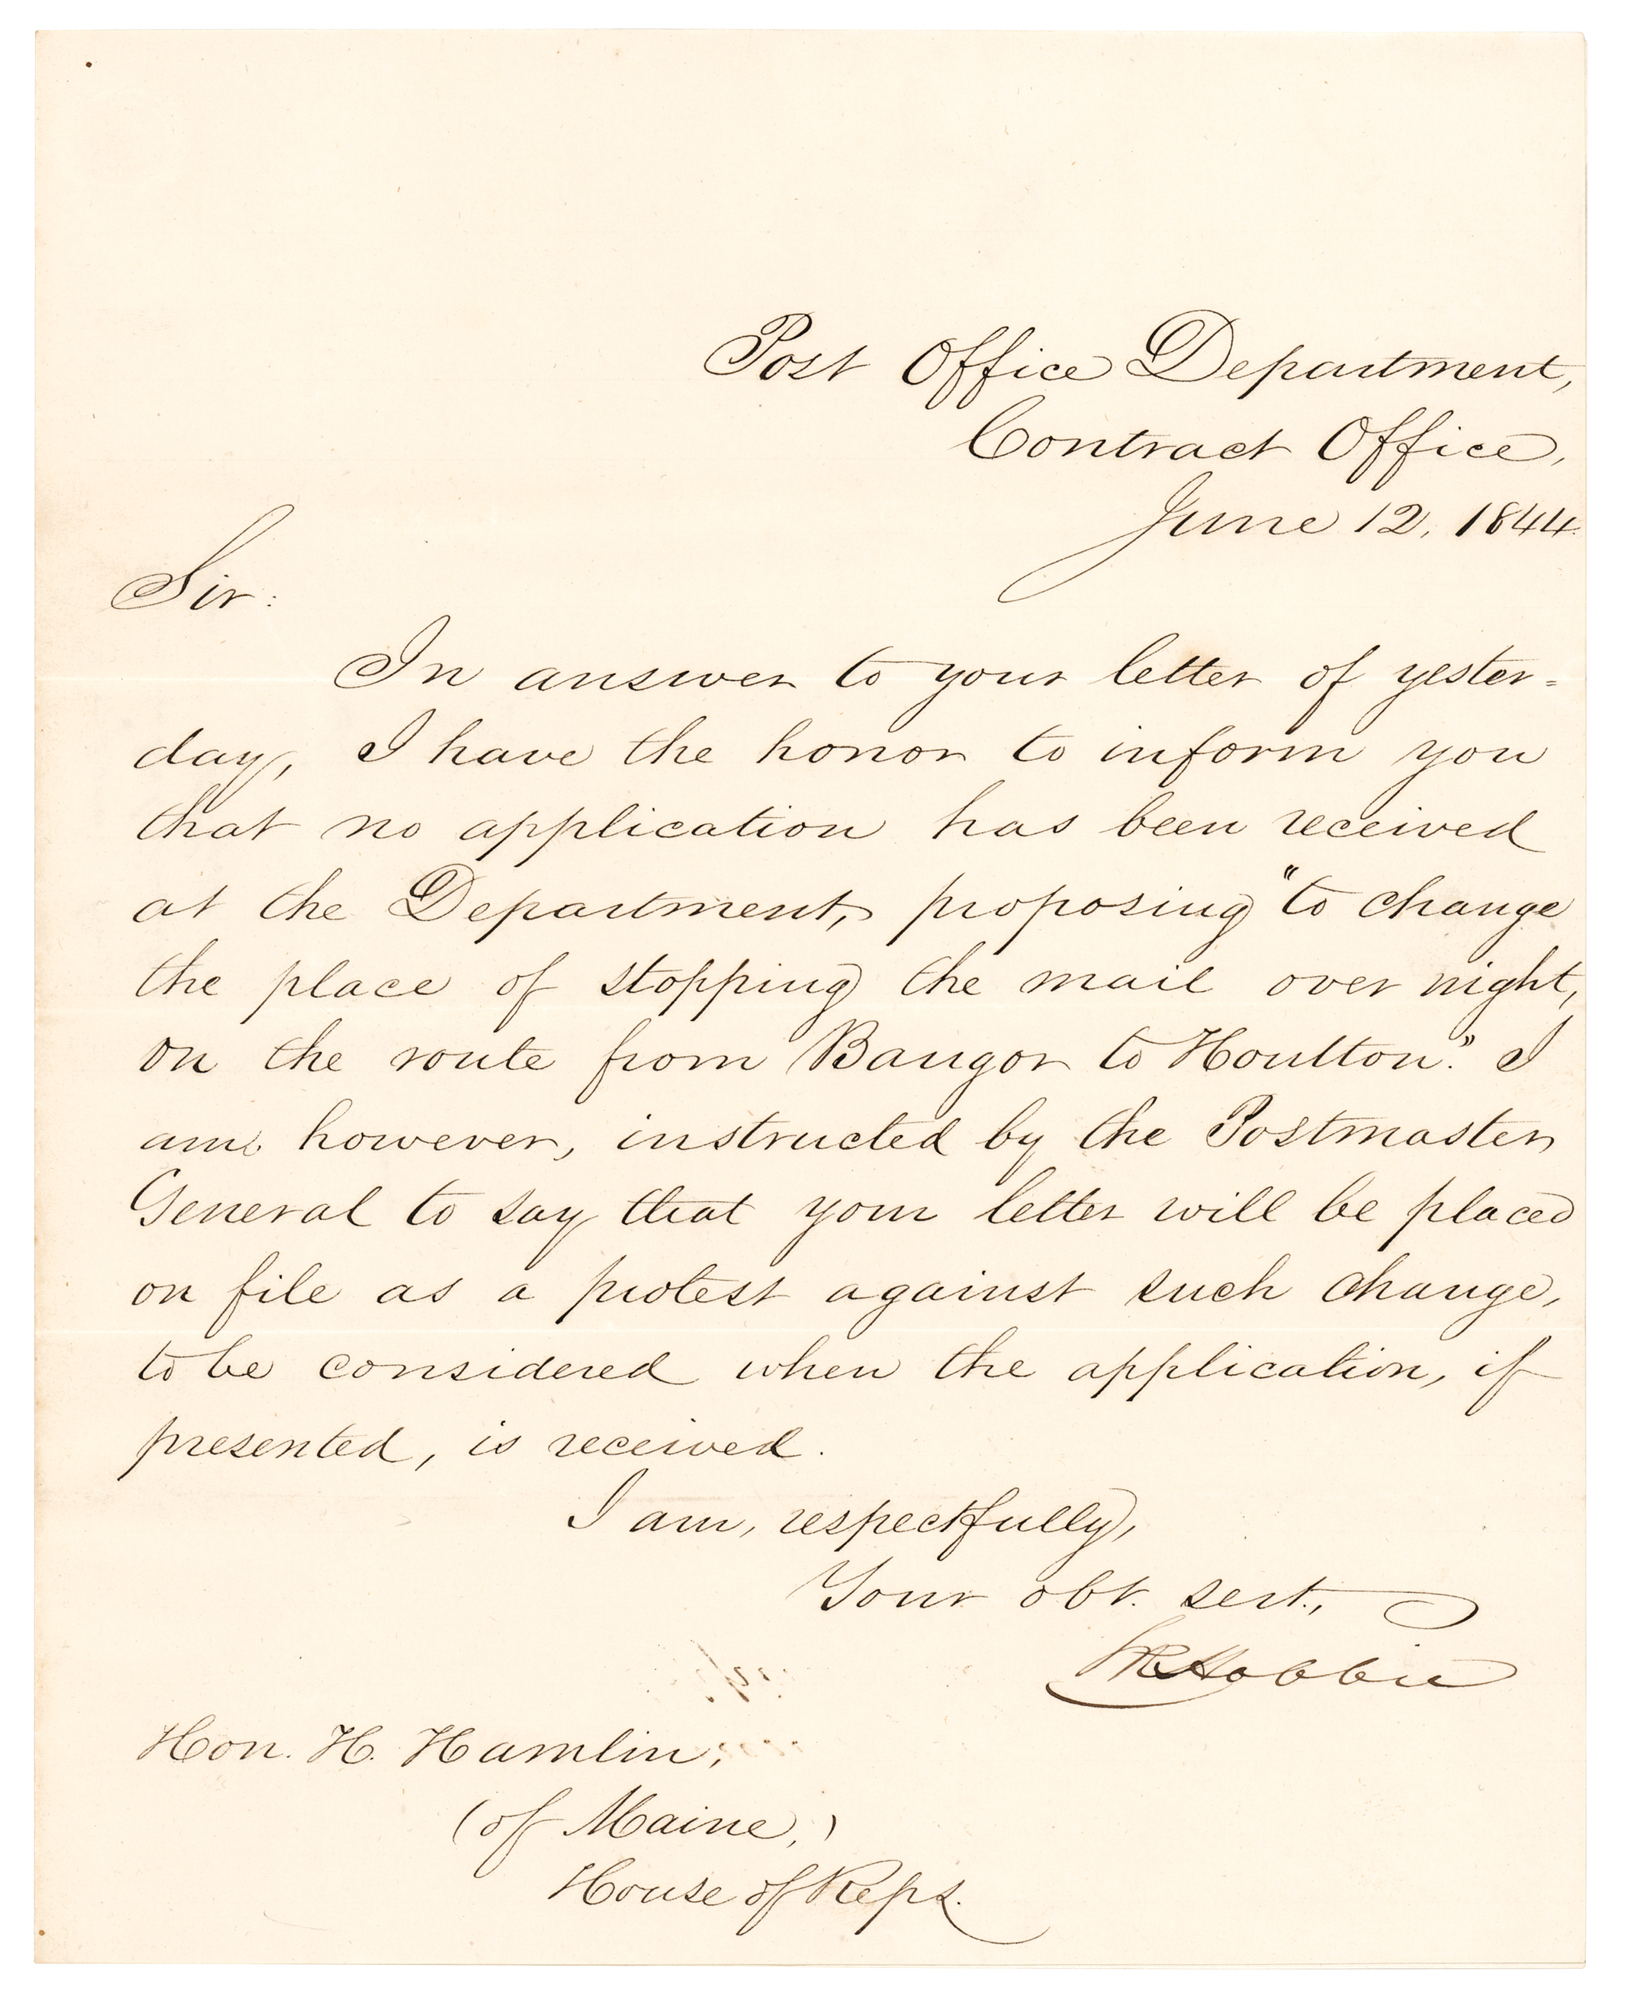 Post Office Department,
Contract Office,
June 12, 1844.
Sir:
In answer to your letter of yester=
day, I have the honor to inform you
that no application has been received
at the Department, proposing "to change
the place of stopping the mail over night,
on the route from Bangor to Houlton." I
am, however, instructed by the Postmaster
General to say that your letter will be placed
on file as a protest against such change,
to be considered when the application, if
presented, is received.
I am, respectfully,
Your obt. sert.,
S R Hobbie
Hon. H. Hamlin,
(of Maine,)
House of Reps.